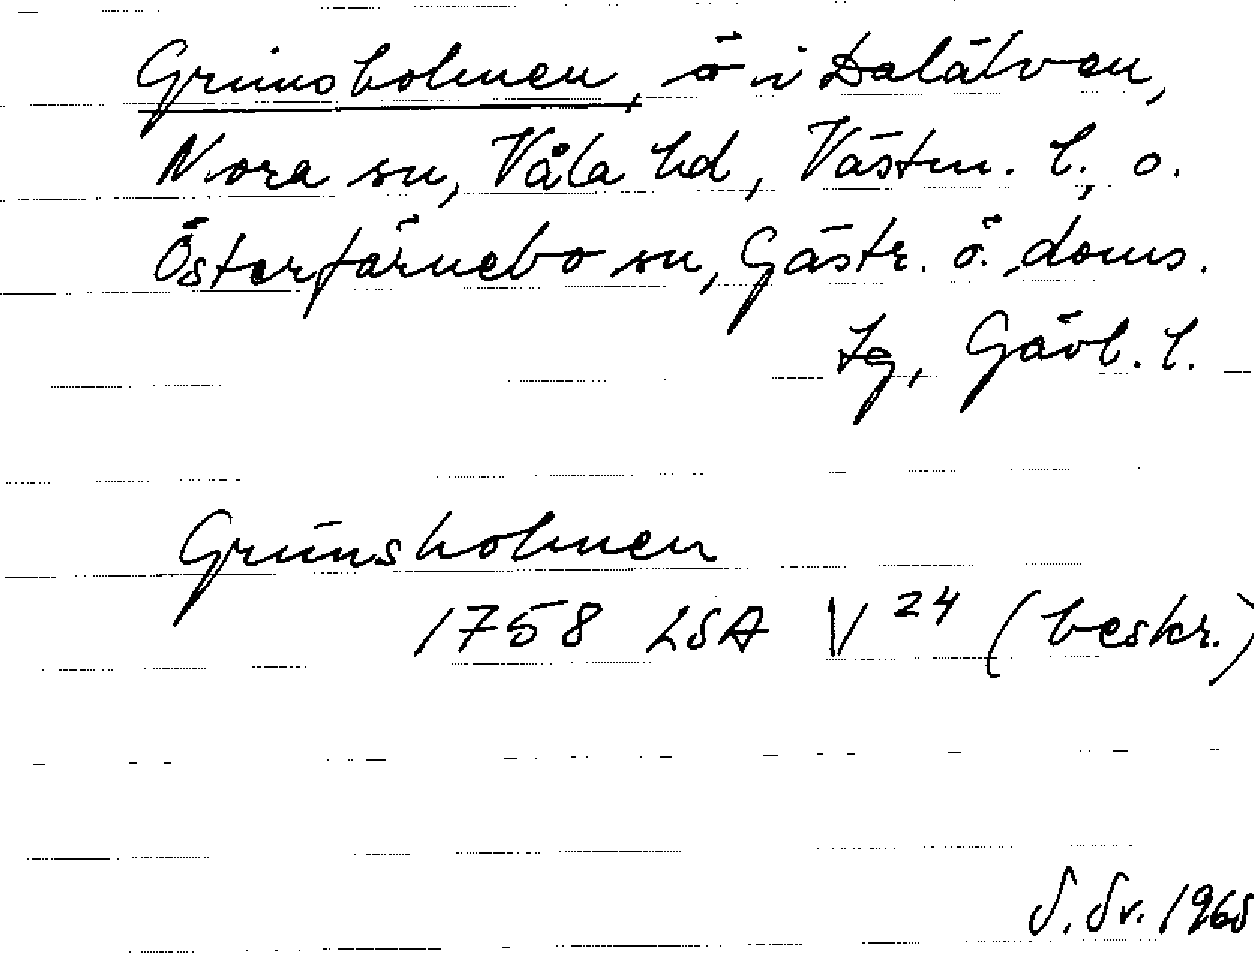 Grinsholmen, ö i Dalälven,
Nora sn, Våla hd, Västm. l., o.
Österfärnebo sn, Gästr. ö. doms.
tg, Gävl. l.
Grinsholmen
1758 LSA V 24 (beskr.)
S. Sv. 1965